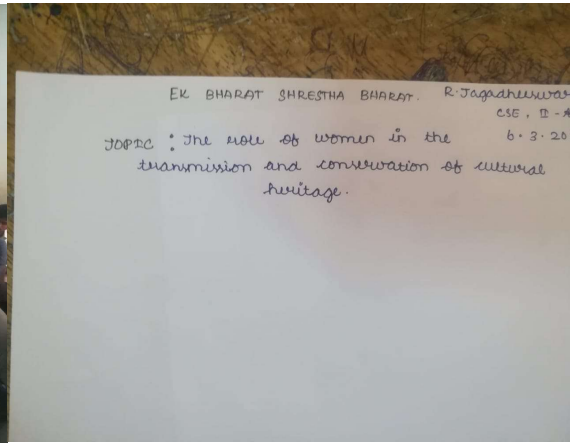 EK BHARAT SHRESTHA BHARAT.
R. Jagadheeswar
CSE, II - A
6.3.20
TOPIC : The role of women in the
transmission and conservation of cultural
heritage.